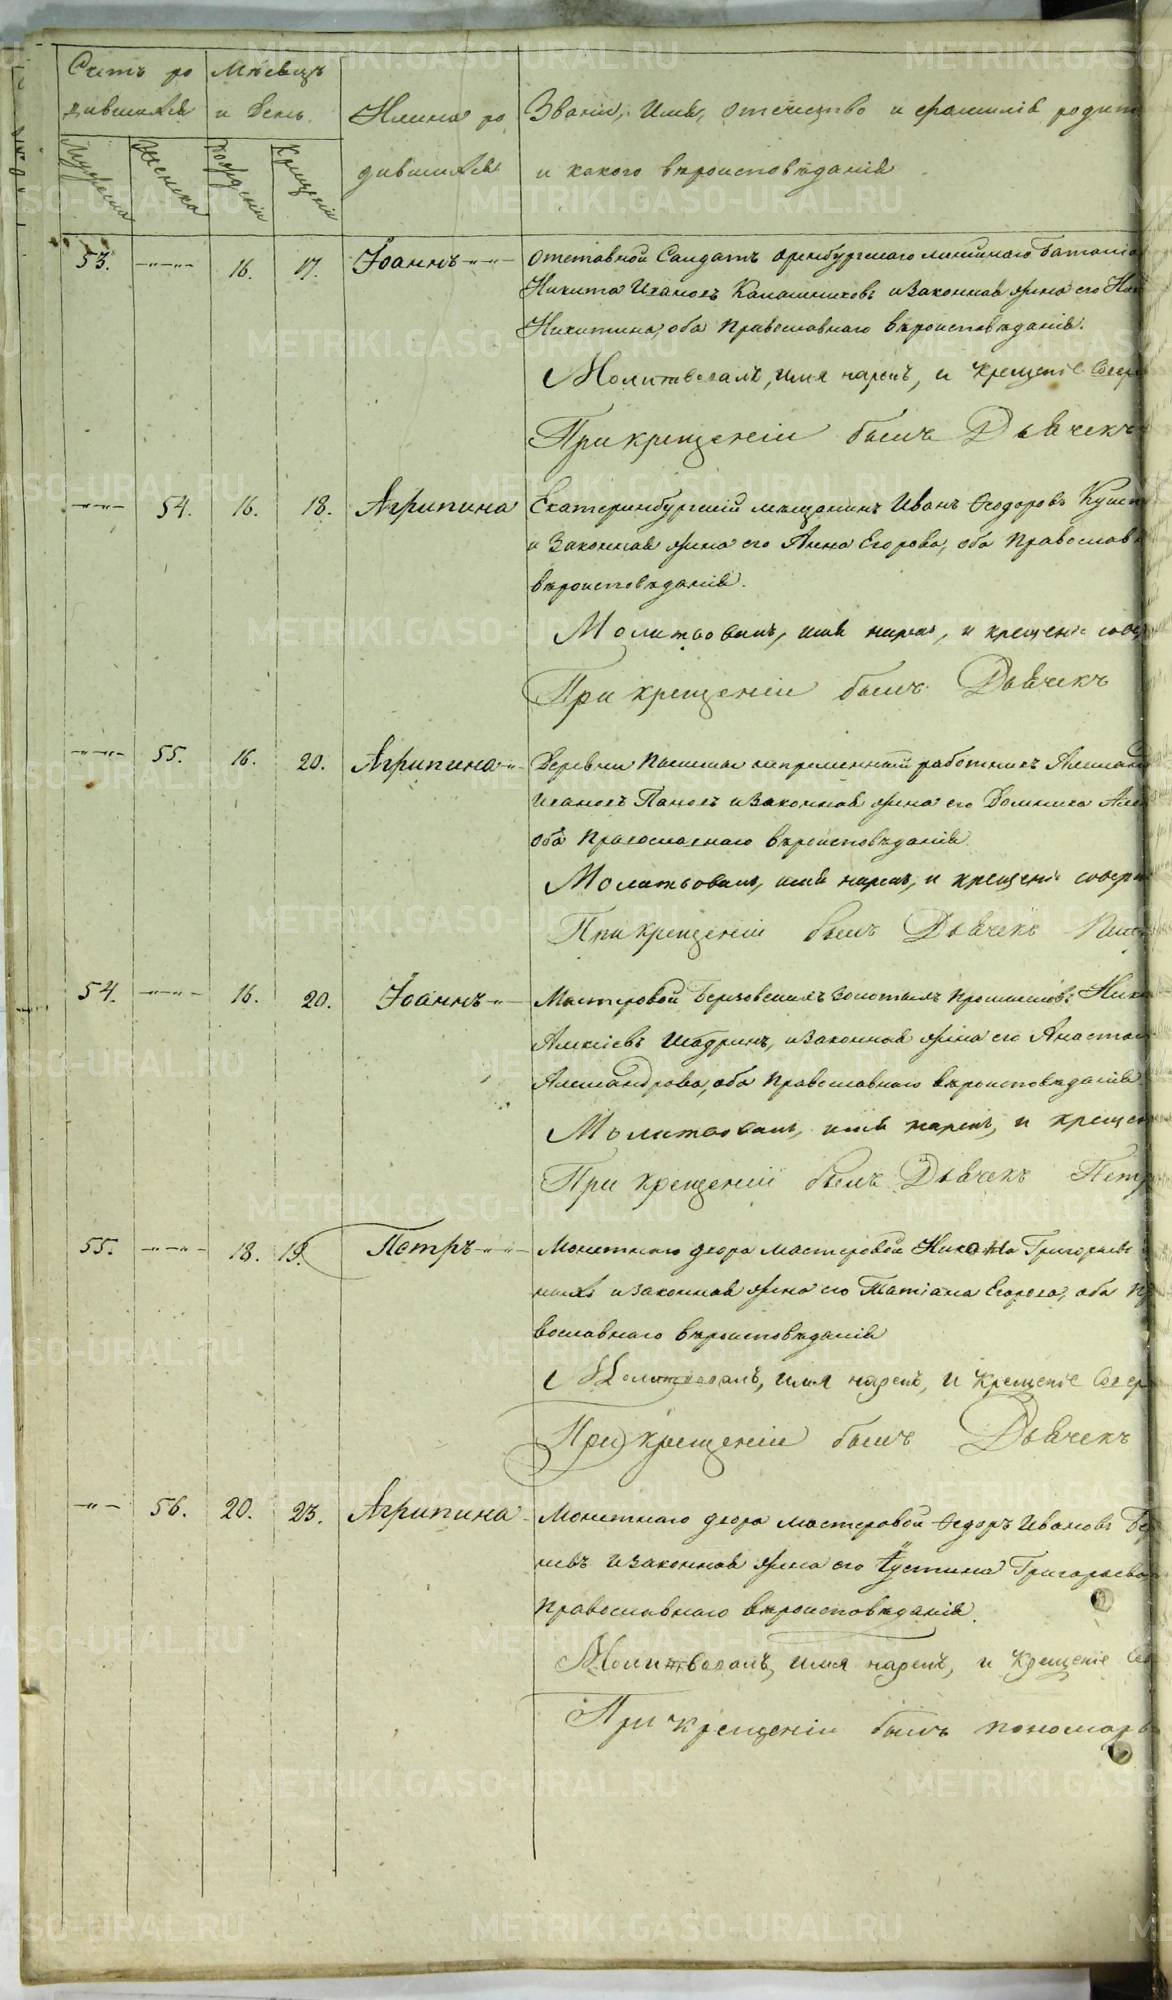 Счетъ ро
дившихся
Мѣсяцъ
и день.
Имена ро
дившихся
Званіе, имя, отечество и фамилія родит
и какого вѣроисповѣданія
Мужеска
Женска
Рожденія
Крещенія
53. 16. 17. Іоаннъ Отставной Солдатъ Оренбургскаго линейнаго Баталіо
Никита Ивановъ Калашниковъ и законная жена его
Никитина, оба Православнаго вѣроисповѣданія.
Молитвовалъ, имя нарекъ, и крещеніе Совер
При крещеніи былъ Дьячекъ
54. 16. 18. Агрипина Екатеринбургскій мѣщанинъ Иванъ Ѳеодоровъ
и законная жена его Анна Егорова, оба Православн
вѣроисповѣданія.
Молитвовалъ, имя нарекъ, и крещеніе сове
При крещеніи былъ Дьячекъ
55. 16. 20. Агрипина Деревни непременный работникъ Александ
Ивановъ Пановъ и законная жена его Домника
оба Православнаго вѣроисповѣданія
Молитвовалъ, имя нарекъ, и крещеніе соверш
При крещеніи былъ Дьячекъ
54. 16. 20. Іоаннъ Мастеровой Березовскихъ золотыхъ промысловъ
Алексіевъ Шадринъ, и законная жена его Анастас
Александрова, оба Православнаго вѣроисповѣданія.
Молитвовалъ, имя нарекъ, и крещен
При крещеніи былъ Дьячекъ Петр
55. 18. 19. Петръ Монетнаго двора мастеровой Никола Григорьевъ
и законная жена его Татіана Егорова, оба Пра
вославнаго вѣроисповѣданія
Молитвовалъ, имя нарекъ, и крещеніе Совер
При крещеніи былъ Дьячекъ
56. 20. 23. Агрипина Монетнаго двора мастеровой Ѳедоръ Ивановъ
невъ и законная жена его Іустина Григорьева
Православнаго вѣроисповѣданія.
Молитвовалъ, имя нарекъ, и Крещеніе Сов
При крещеніи былъ пономарь
METRIKI.GASO-URAL.RU